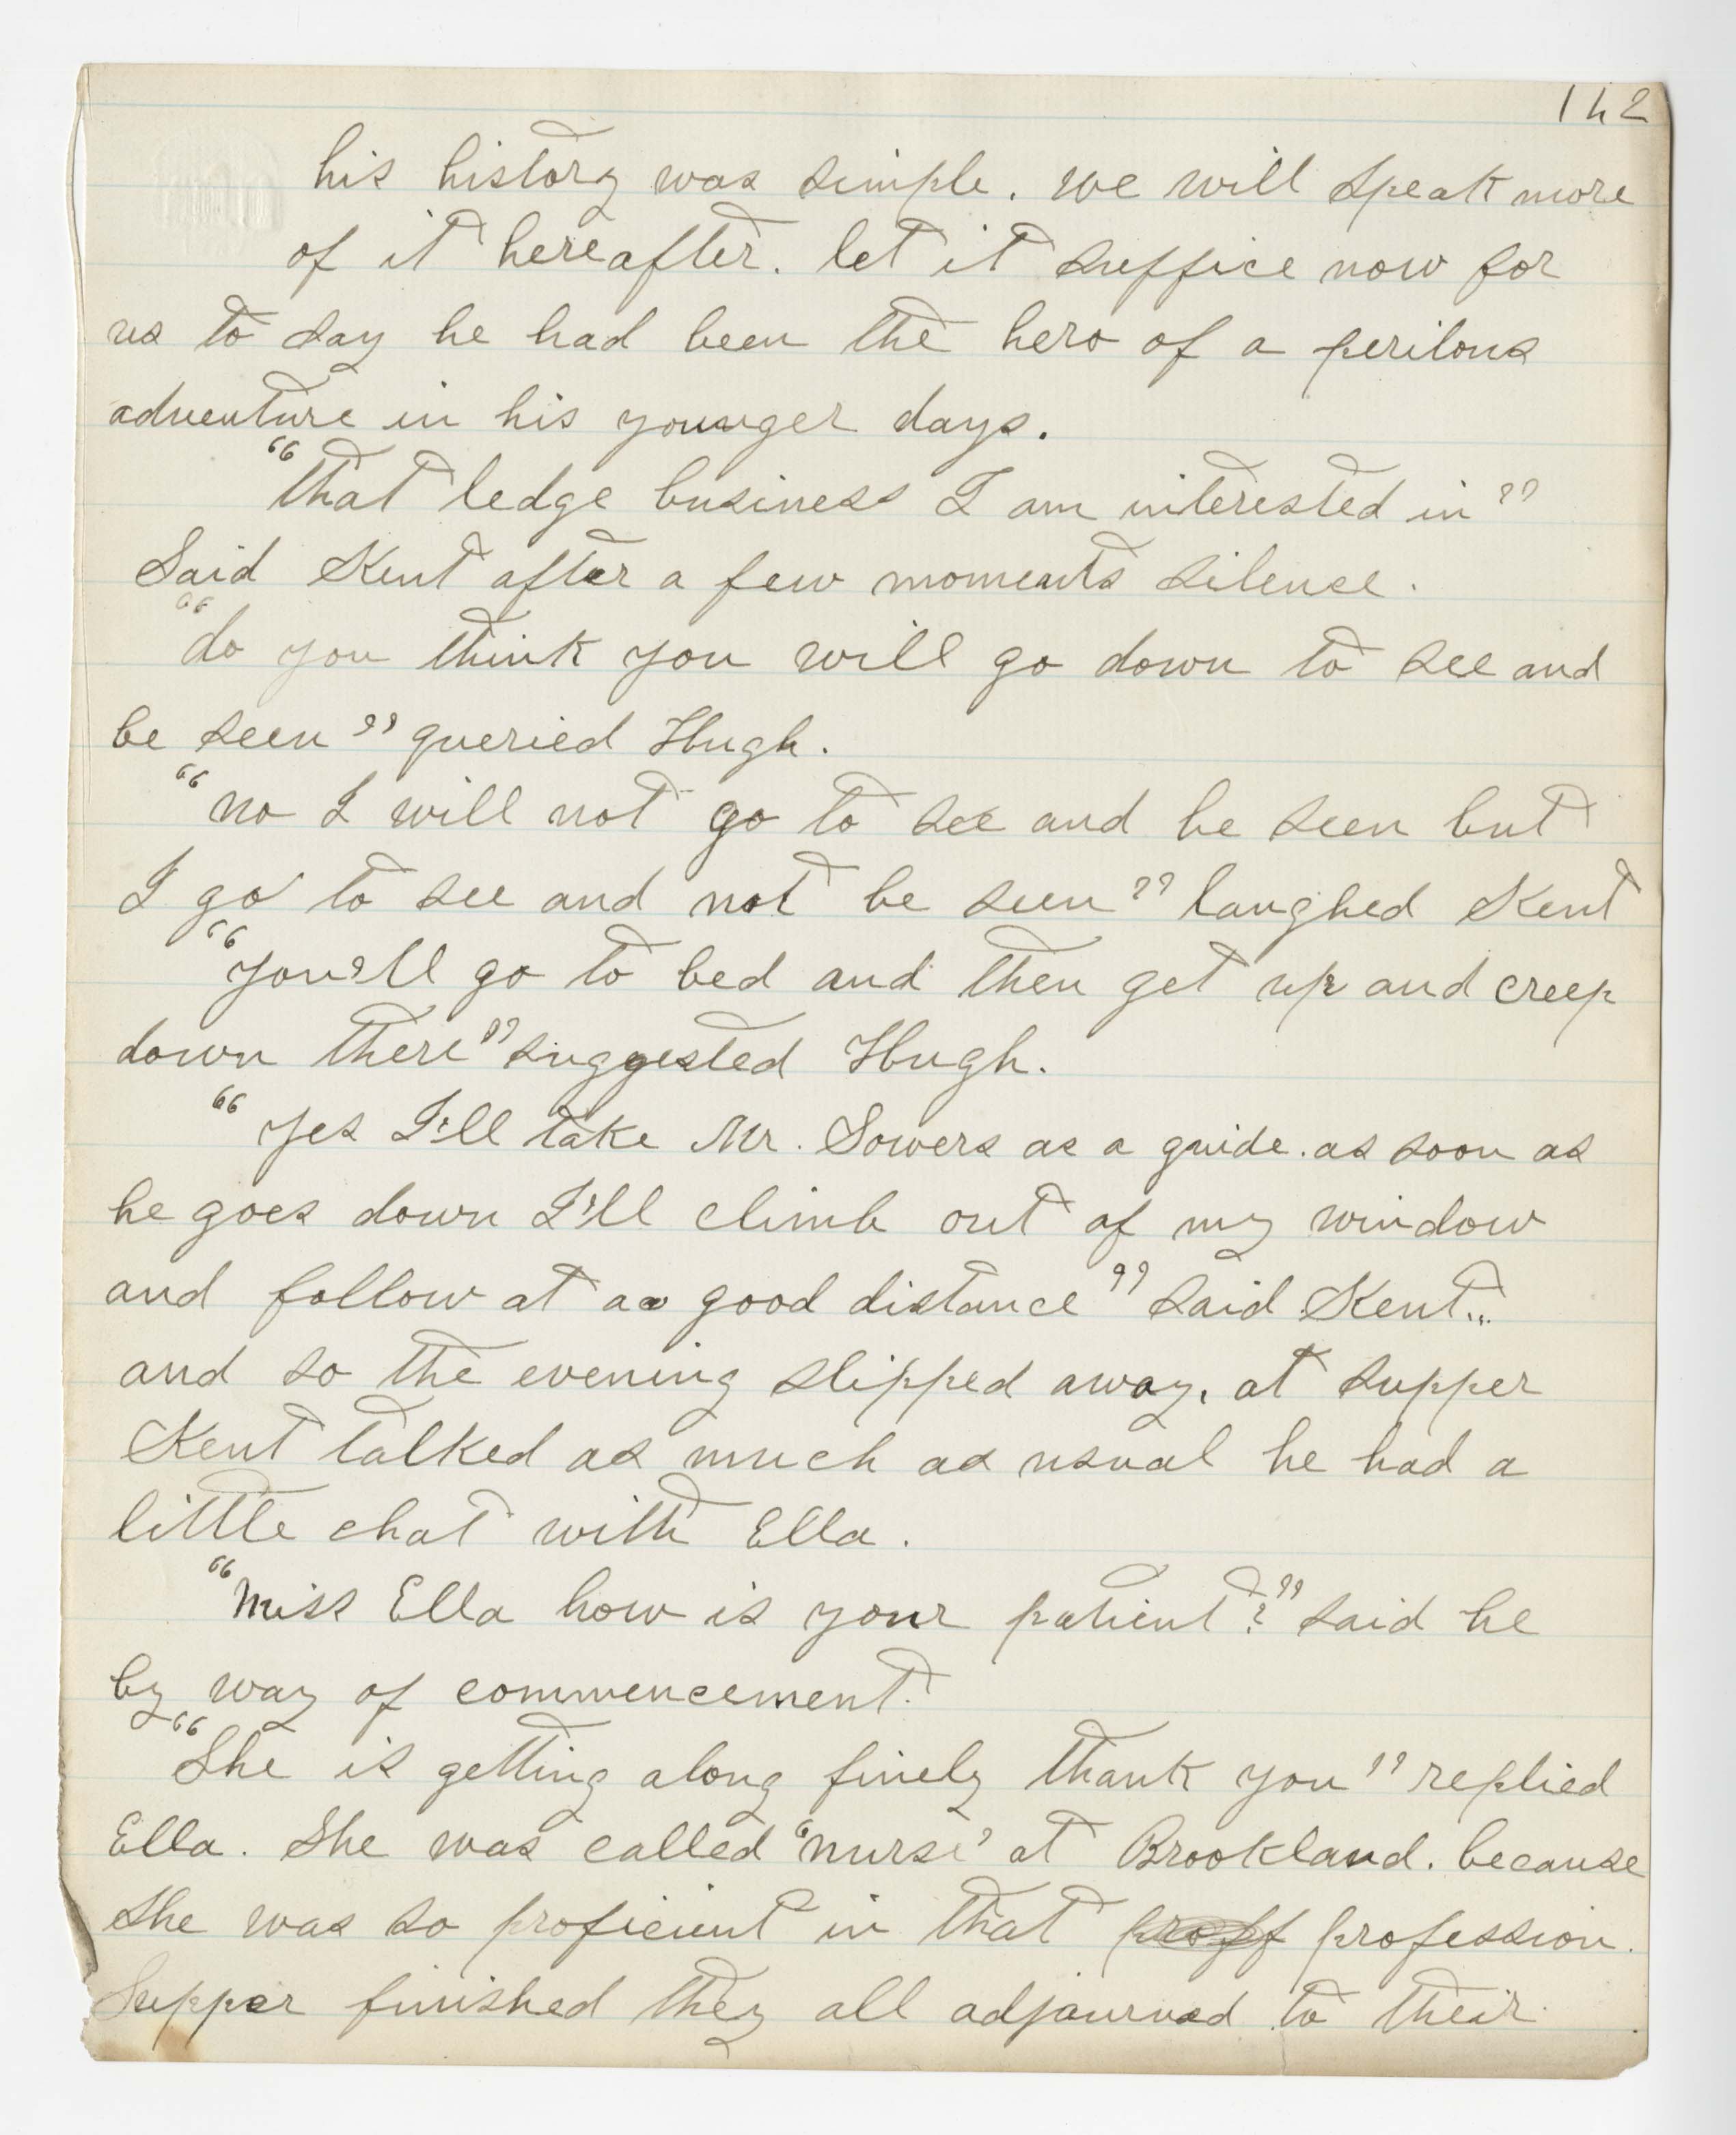 142
his history was simple. we will speak more
of it hereafter. let it suffice now for
us to say he had been the hero of a perilous
adventure in his younger days.
"that ledge business I am interested in"
Said Kent after a few moments silence.
"do you think you will go down to see and
be seen" queried Hugh.
"no I will not go to see and be seen but
I go to see and not be seen" laughed Kent
"you'll go to bed and then get up and creep
down there" suggested Hugh.
"Yes I'll take Mr. Sowers as a guide. as soon as
he goes down I'll climb out of my window
and follow at a good distance" said Kent...
and so the evening slipped away. at supper
Kent talked as much as usual he had a
little chat with Ella.
"Miss Ella how is your patient?" said he
by way of commencement.
"She is getting along finely thank you" replied
Ella. She was called 'nurse' at Brookland. because
she was so proficient in that proff profession.
Supper finished they all adjourned to their